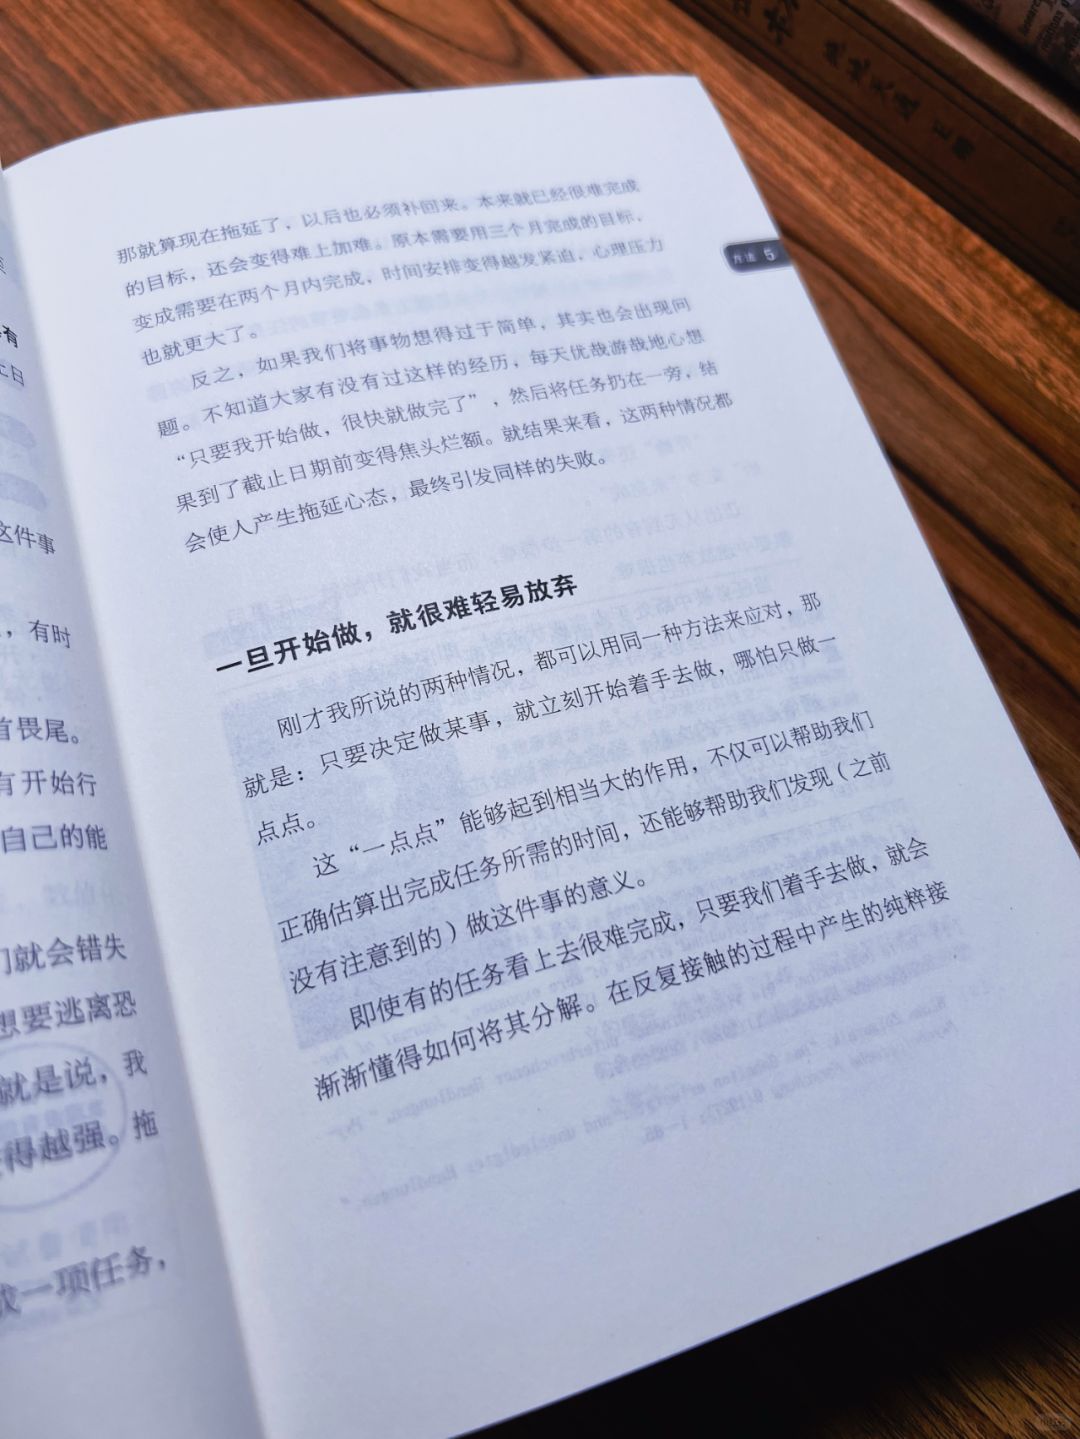 有
止日
这件事
，有时
首畏尾。
有开始行
自己的能
们就会错失
想要逃离恐
就是说，我
得越强。拖
成一项任务，
那就算现在拖延了，以后也必须补回来。本来就已经很难完成
的目标，还会变得难上加难。原本需要用三个月完成的目标，
变成需要在两个月内完成，时间安排变得越发紧迫，心理压力
也就更大了。
反之，如果我们将事物想得过于简单，其实也会出现问
题。不知道大家有没有过这样的经历，每天优哉游哉地心想
“只要我开始做，很快就做完了”，然后将任务扔在一旁，结
果到了截止日期前变得焦头烂额。就结果来看，这两种情况都
会使人产生拖延心态，最终引发同样的失败。
一旦开始做，就很难轻易放弃
刚才我所说的两种情况，都可以用同一种方法来应对，那
就是：只要决定做某事，就立刻开始着手去做，哪怕只做一
点点。
这“一点点”能够起到相当大的作用，不仅可以帮助我们
正确估算出完成任务所需的时间，还能够帮助我们发现（之前
没有注意到的）做这件事的意义。
即使有的任务看上去很难完成，只要我们着手去做，就会
渐渐懂得如何将其分解。在反复接触的过程中产生的纯粹接
方法 5